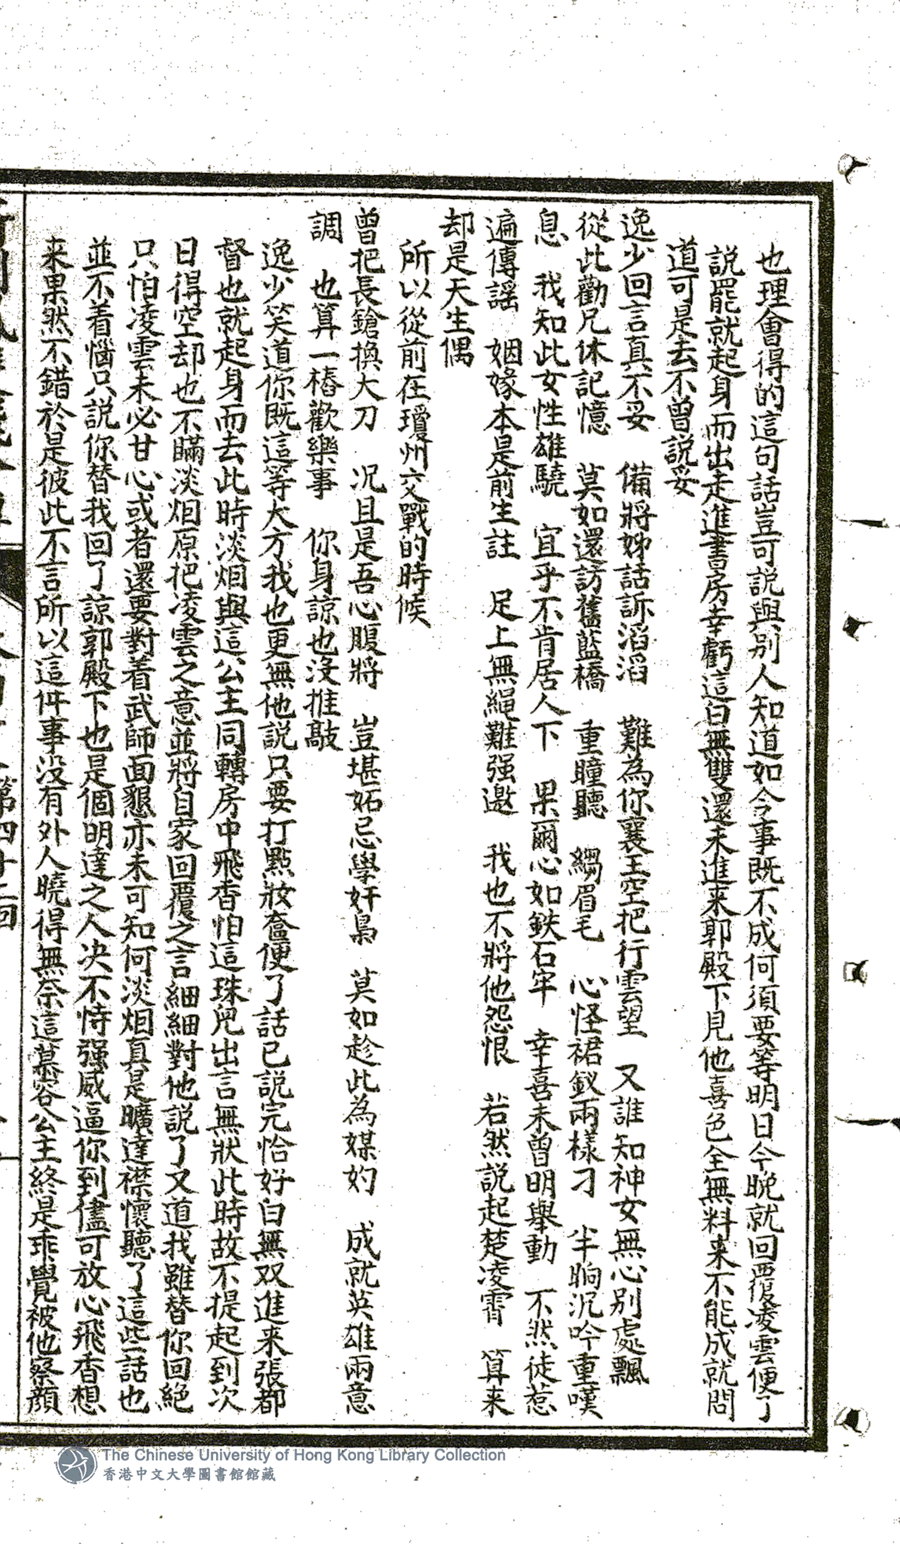 也理會得的這句話豈可説與別人知道如今事既不成何須要等明日今晚就回覆凌雲便了
説罷就起身而出走進書房幸虧這白無雙還未進來郭殿下見他喜色全無料來不能成就問
道可是去不曾説妥
逸少回言真不妥　備將姊話訴滔滔　難為你襄王空把行雲望　又誰知神女無心別處飄
從此勸兄休記憶　莫如還訪舊藍橋　重瞳聽　縐眉毛　心怪裙釵兩樣刁　半晌沉吟重嘆
息　我知此女性雄驍　宜乎不肯居人下　果爾心如鉄石牢　幸喜未曾明舉動　不然徒惹
遍傳謡　姻緣本是前生註　足上無繩難强邀　我也不將他怨恨　若然説起楚凌霄　算来
却是天生偶
所以從前在瓊州交戰的時候
曾把長鎗換大刀　况且是吾心腹將　豈堪妬忌學奸梟　莫如趁此為媒妁　成就英雄兩意
調　也算一樁歡樂事　你身諒也没推敲
逸少笑道你既這等大方我也更無他説只要打點妝奩便了話已説完恰好白無双進来張都
督也就起身而去此時淡烟與這公主同轉房中飛香怕這珠兒出言無狀此時故不提起到次
日得空却也不瞞淡烟原把凌雲之意並將自家回覆之言細細對他説了又道我雖替你回絕
只怕凌雲未必甘心或者還要對着武師面懇亦未可知何淡烟真是曠達襟懷聽了這些話也
並不着惱只説你替我回了諒郭殿下也是個明達之人决不恃强威逼你到儘可放心飛香想
来果然不錯於是彼此不言所以這件事没有外人曉得無奈這慕容公主終是乖覺被他察顏
第四十二回
The Chinese University of Hong Kong Library Collection
香港中文大學圖書館館藏